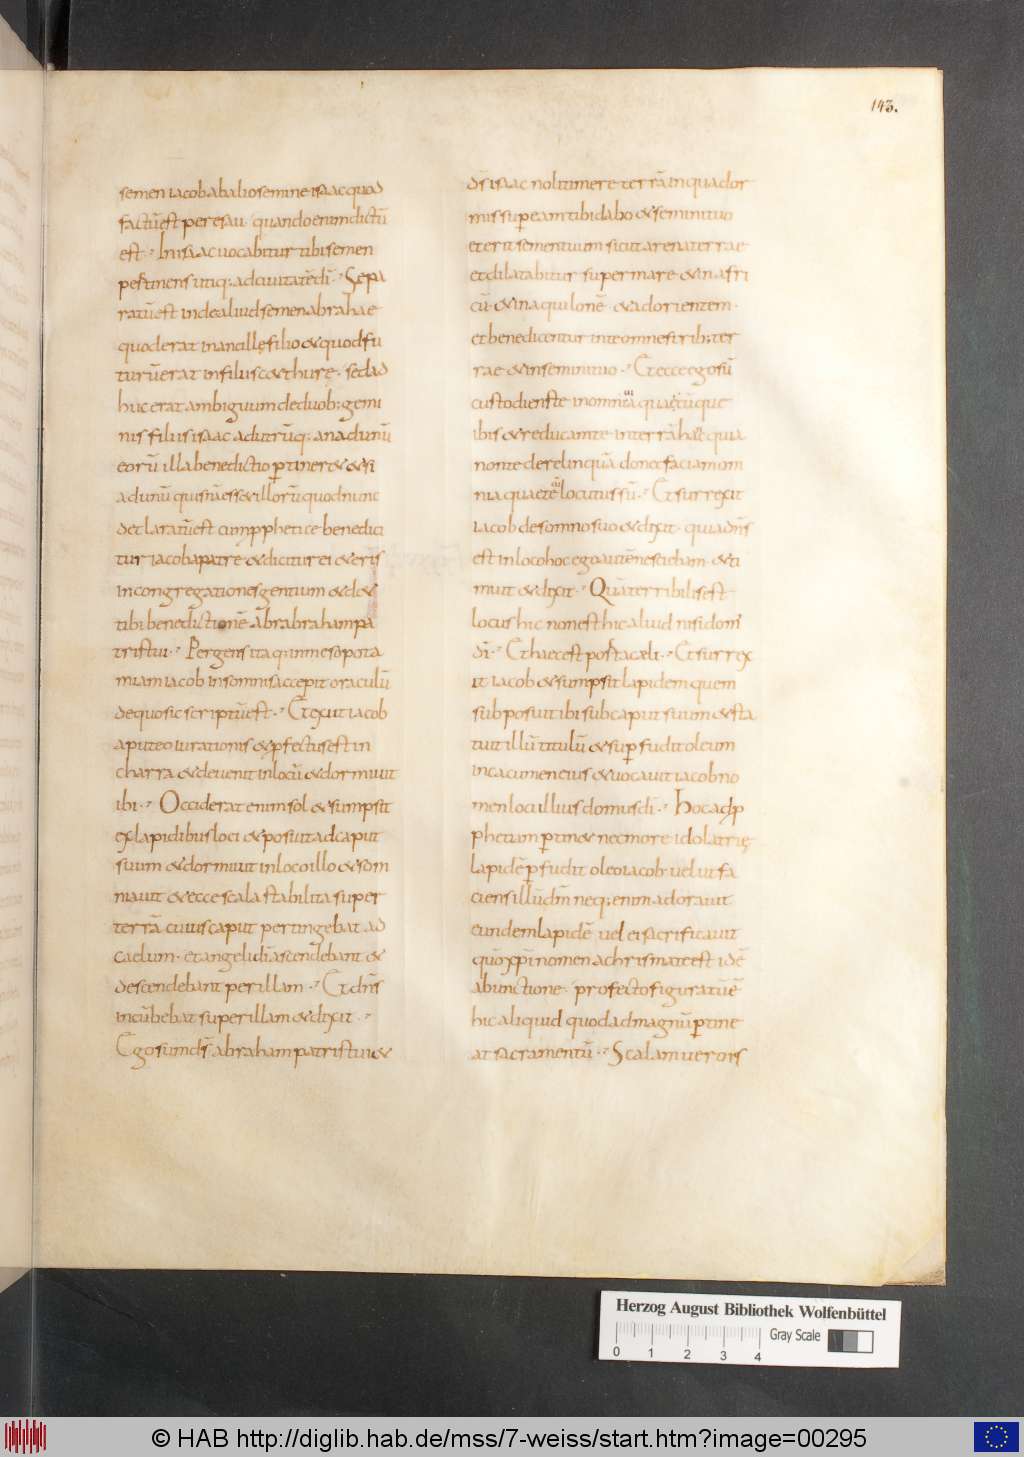 143.
semen iacob ab alio semine isaac quod
factū est per esau · quando enim dictū
est · In isaac uocabitur tibi semen
pertinens utiq; ad ciuitatē dī · Sepa
ratū est inde aliud semen abrahae
quod erat in ancillę filio & quod fu
turū erat in filiis c&thurę · sed ad
huc erat ambiguum de duob; gemi
nis filiis isaac ad utrūq; an ad unū
eorū illa benedictio ptiner& & si
ad unū quisnā ess& illorū quod nunc
declaratū est cum pph&ice benedici
tur iacob a patre & dicitur ei & eris
in congregationes gentium & d&
tibi benedictionē abrabraham pa
tris tui · Pergens itaq; in mesopota
miam iacob in somnis accepit oraculū
de quo sic scriptū est · Et exiit iacob
a puteo iurationis & pfectus est in
charra & deuenit in locū & dormiuit
ibi · Occiderat enim sol & sumpsit
ex lapidibus loci & posuit ad caput
suum & dormiuit in loco illo & som
niauit & ecce scala stabilita super
terrā cuius caput pertingebat ad
caelum · et angeli dī ascendebant &
descendebant per illam · Et dn̄s
incūbebat super illam & dixit ·
Ego sum ds̄ abraham patris tui &
ds̄ isaac noli timere terrā in qua dor
mis super eam tibi dabo & semini tuo
et erit semen tuum sicut arena terrae
et dilatabitur super mare & in afri
cū · & in aquilonē · & ad orientem ·
et benedicentur in te omnes trib; ter
rae & in semini tuo · Et ecce ego sū
custodiens te in omni uia quacūque
ibis & reducam te in terrā hāc quia
non te derelinquā donec faciam om
nia quae tecū locutus sū · Et surrexit
iacob de somno suo & dixit · quia dn̄s
est in loco hoc ego autē nesciebam · & ti
muit & dixit · Quā terribilis est
locus hic non est hic aliud nisi dom'
dī · Et haec est porta caeli · Et surrex
it iacob & sumpsit lapidem quem
subposuit ibi sub caput suum & sta
tuit illū titulū & supfudit oleum
in cacumen eius & uocauit iacob no
men loci illius domus dī · Hoc ad p
phetiam ptin& nec more idolatrię
lapidē pfudit oleo iacob uelut fa
ciens illū dm̄ neq; enim adorauit
eundem lapidē uel ei sacrificauit
quō xp̄i nomen a chrismate est idē
ab unctione · profecto figuratū ē
hic aliquid quod ad magnū ptine
at sacramentū · Scalam uero is
Herzog August Bibliothek Wolfenbüttel
Gray Scale
0 1 2 3 4
© HAB http://diglib.hab.de/mss/7-weiss/start.htm?image=00295